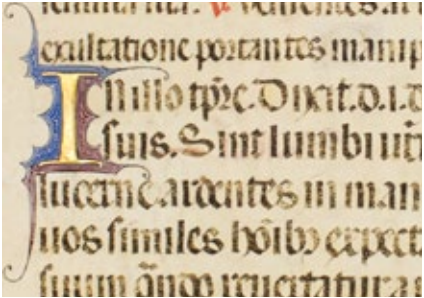 ℣. Venientes a
exultatione portantes manip
In illo tp̄re. Dixit. d. i. d
suis. Sint lumbi ur̄i
lucerne ardentes in man
uos similes hoīb; expect
suum qn̄do reuertatur a